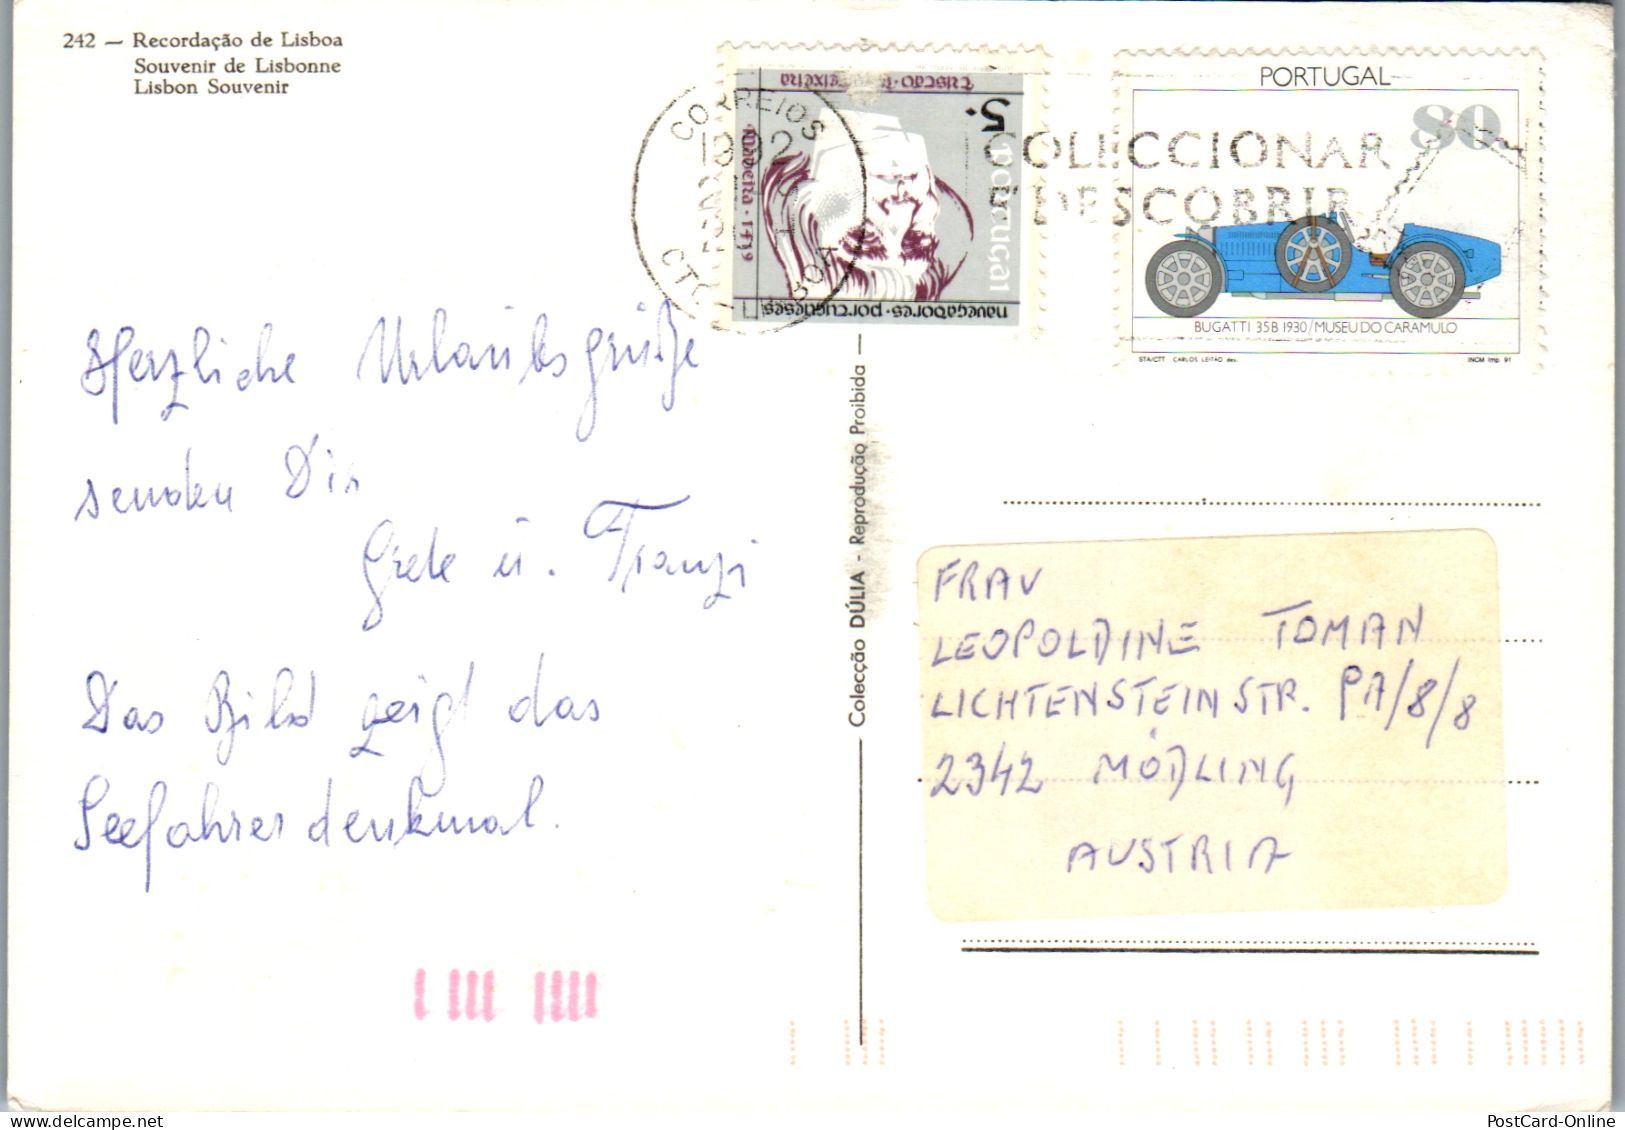 242 — Recordação de Lisboa
Souvenir de Lisbonne
Lisbon Souvenir
navegadores · portugueses
portugal
5.
Madeira · 1419
CORREIOS
1992
COLECCIONAR
É DESCOBRIR
PORTUGAL
80
BUGATTI 35B 1930/MUSEU DO CARAMULO
STA/CTT CARLOS LEITÃO des.
INCM Imp. 91
Herzliche Urlaubsgrüße
senden Dir
Grete u. Franzi
Das Bild zeigt das
Seefahrerdenkmal.
Colecção DÚLIA - Reprodução Proibida —
FRAU
LEOPOLDINE TOMAN
LICHTENSTEINSTR. PA/8/8
2342 MÖDLING
AUSTRIA
PostCard-Online